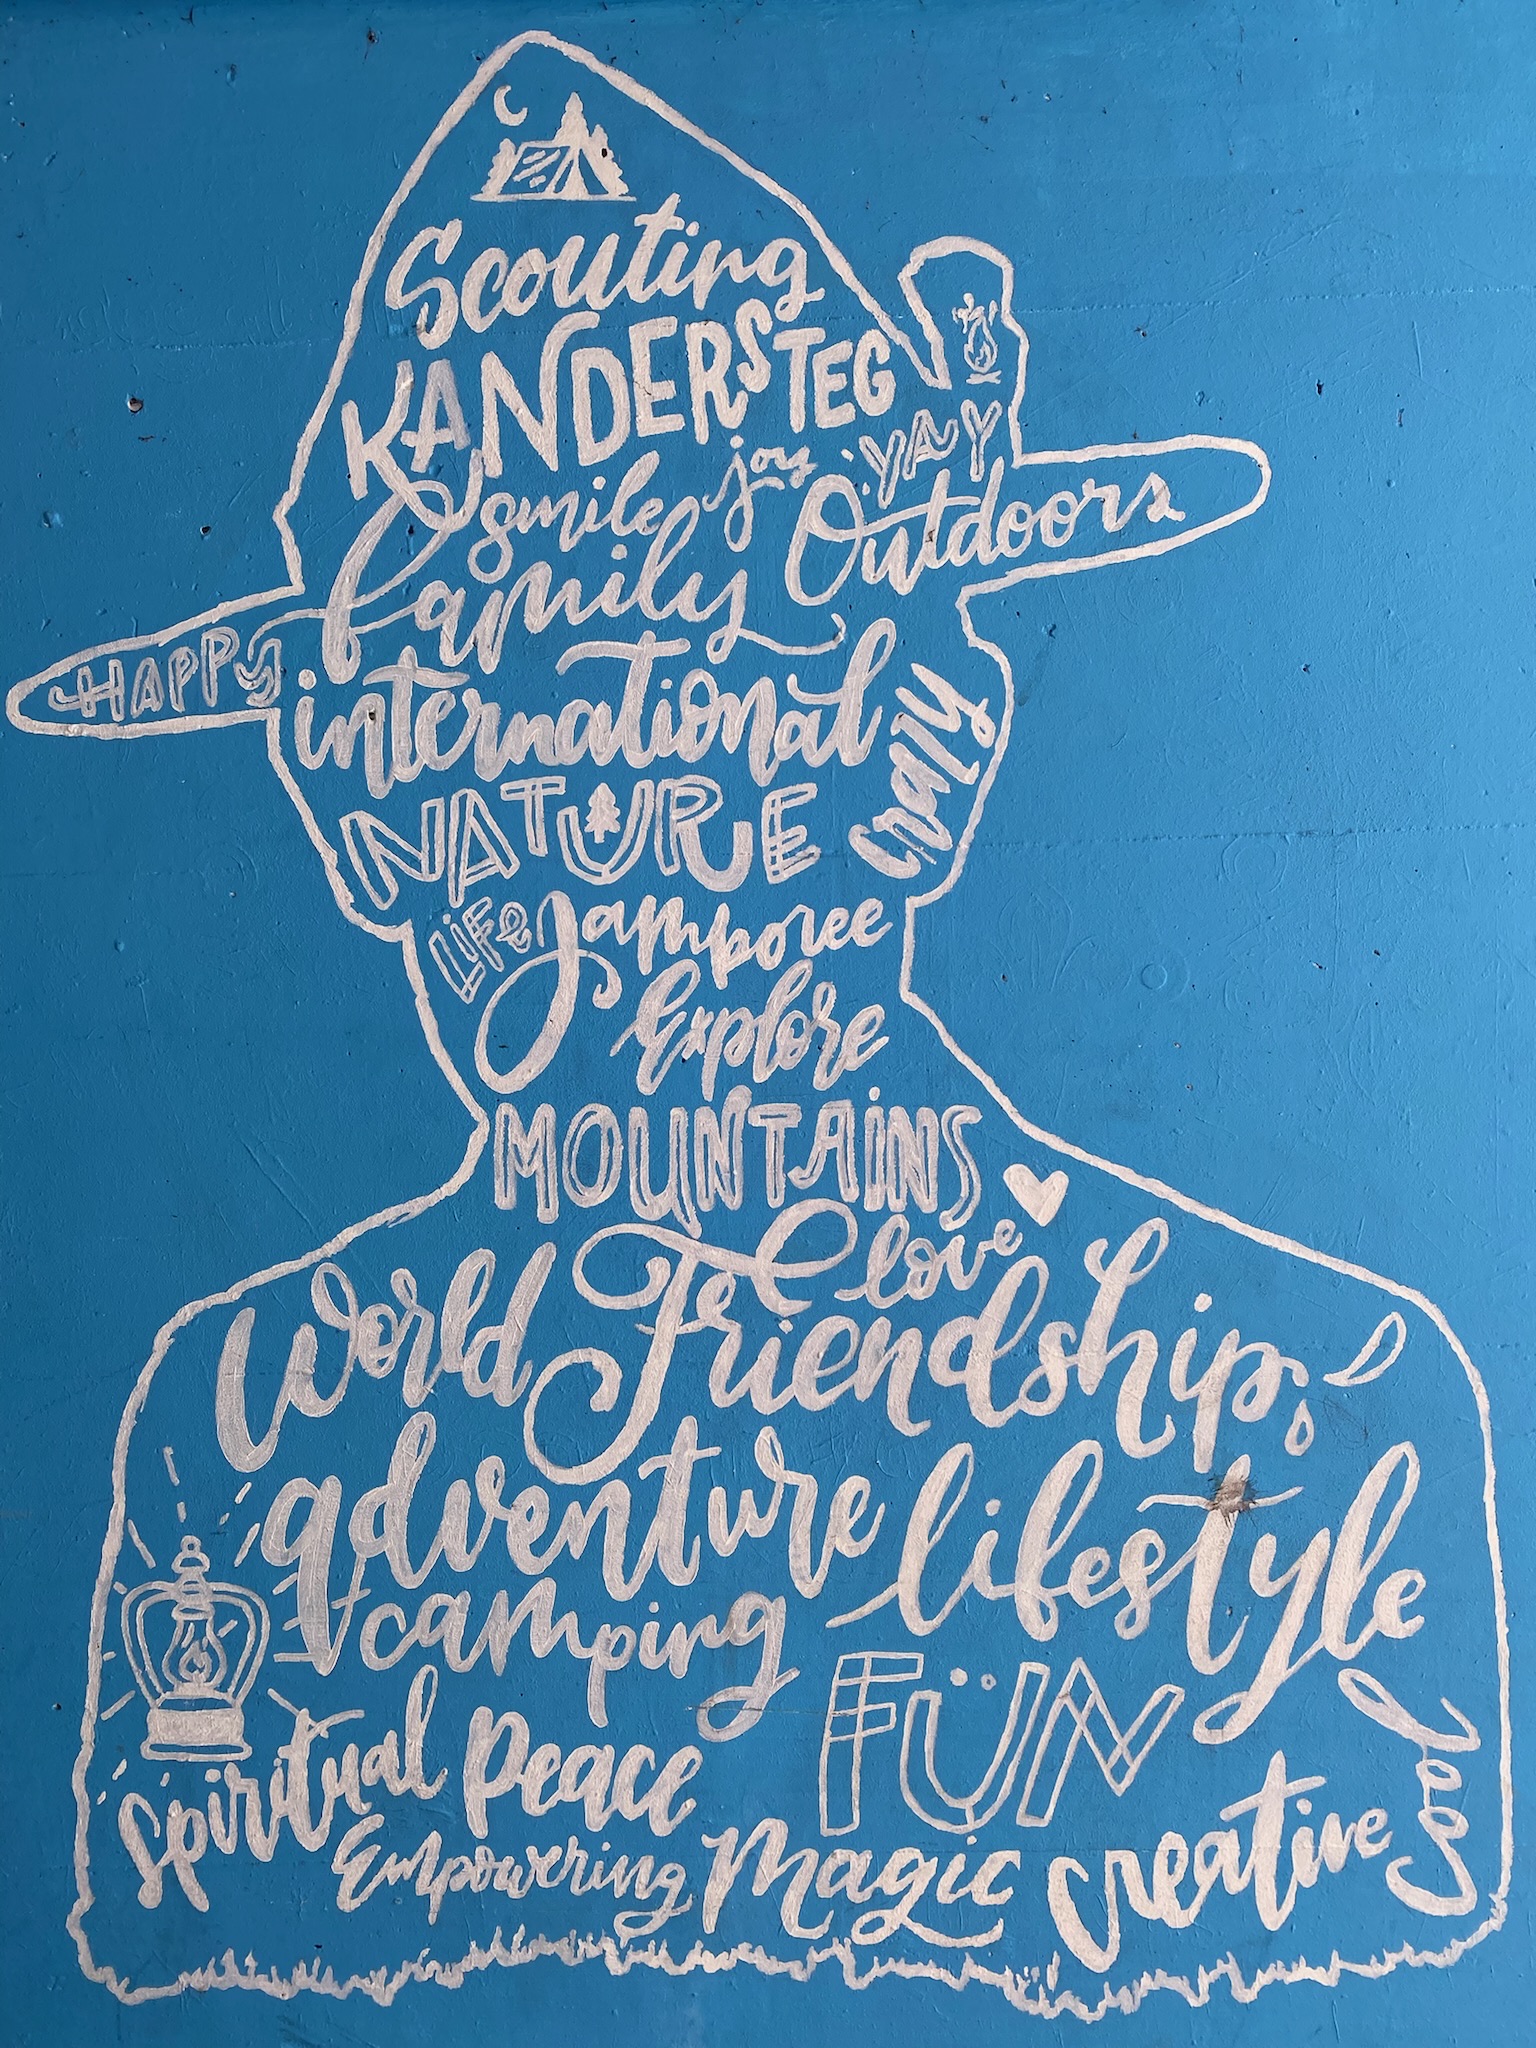 Scouting
KANDERSTEG
smile joy YAY
family Outdoors
HAPPY
international
crazy
NATURE
Life Jamboree
Explore
MOUNTAINS
love
World Friendship
adventure lifestyle
camping
FÜN
Spiritual Peace
Yes
Empowering Magic creative